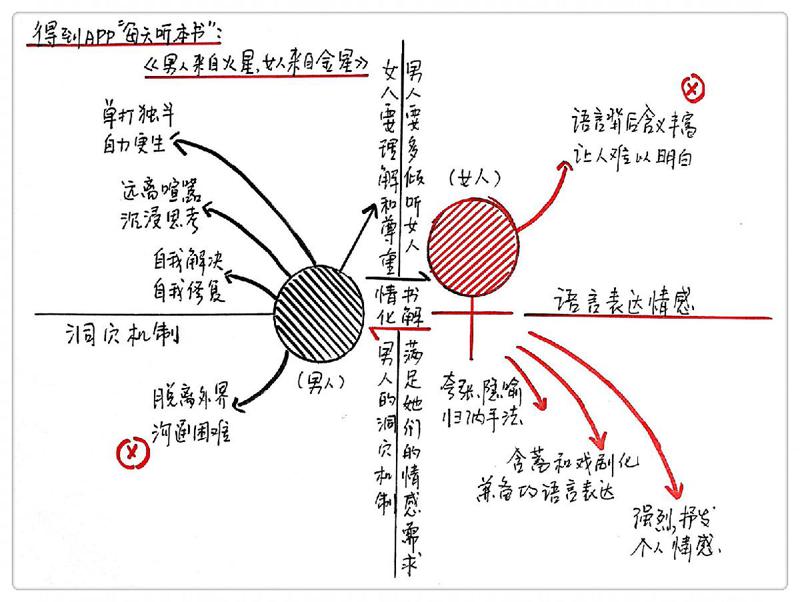 得到APP"每天听本书":
《男人来自火星,女人来自金星》
单打独斗
自力更生
远离喧嚣
沉浸思考
自我解决
自我修复
洞穴机制
(男人)
脱离外界
沟通困难
男人要多倾听女人
女人要理解和尊重
情书
化解
满足她们的情感需求
男人的洞穴机制
(女人)
语言背后含义丰富
让人难以明白
语言表达情感
夸张、隐喻
归纳手法
含蓄和戏剧化
兼备的语言表达
强烈,抒发
个人情感